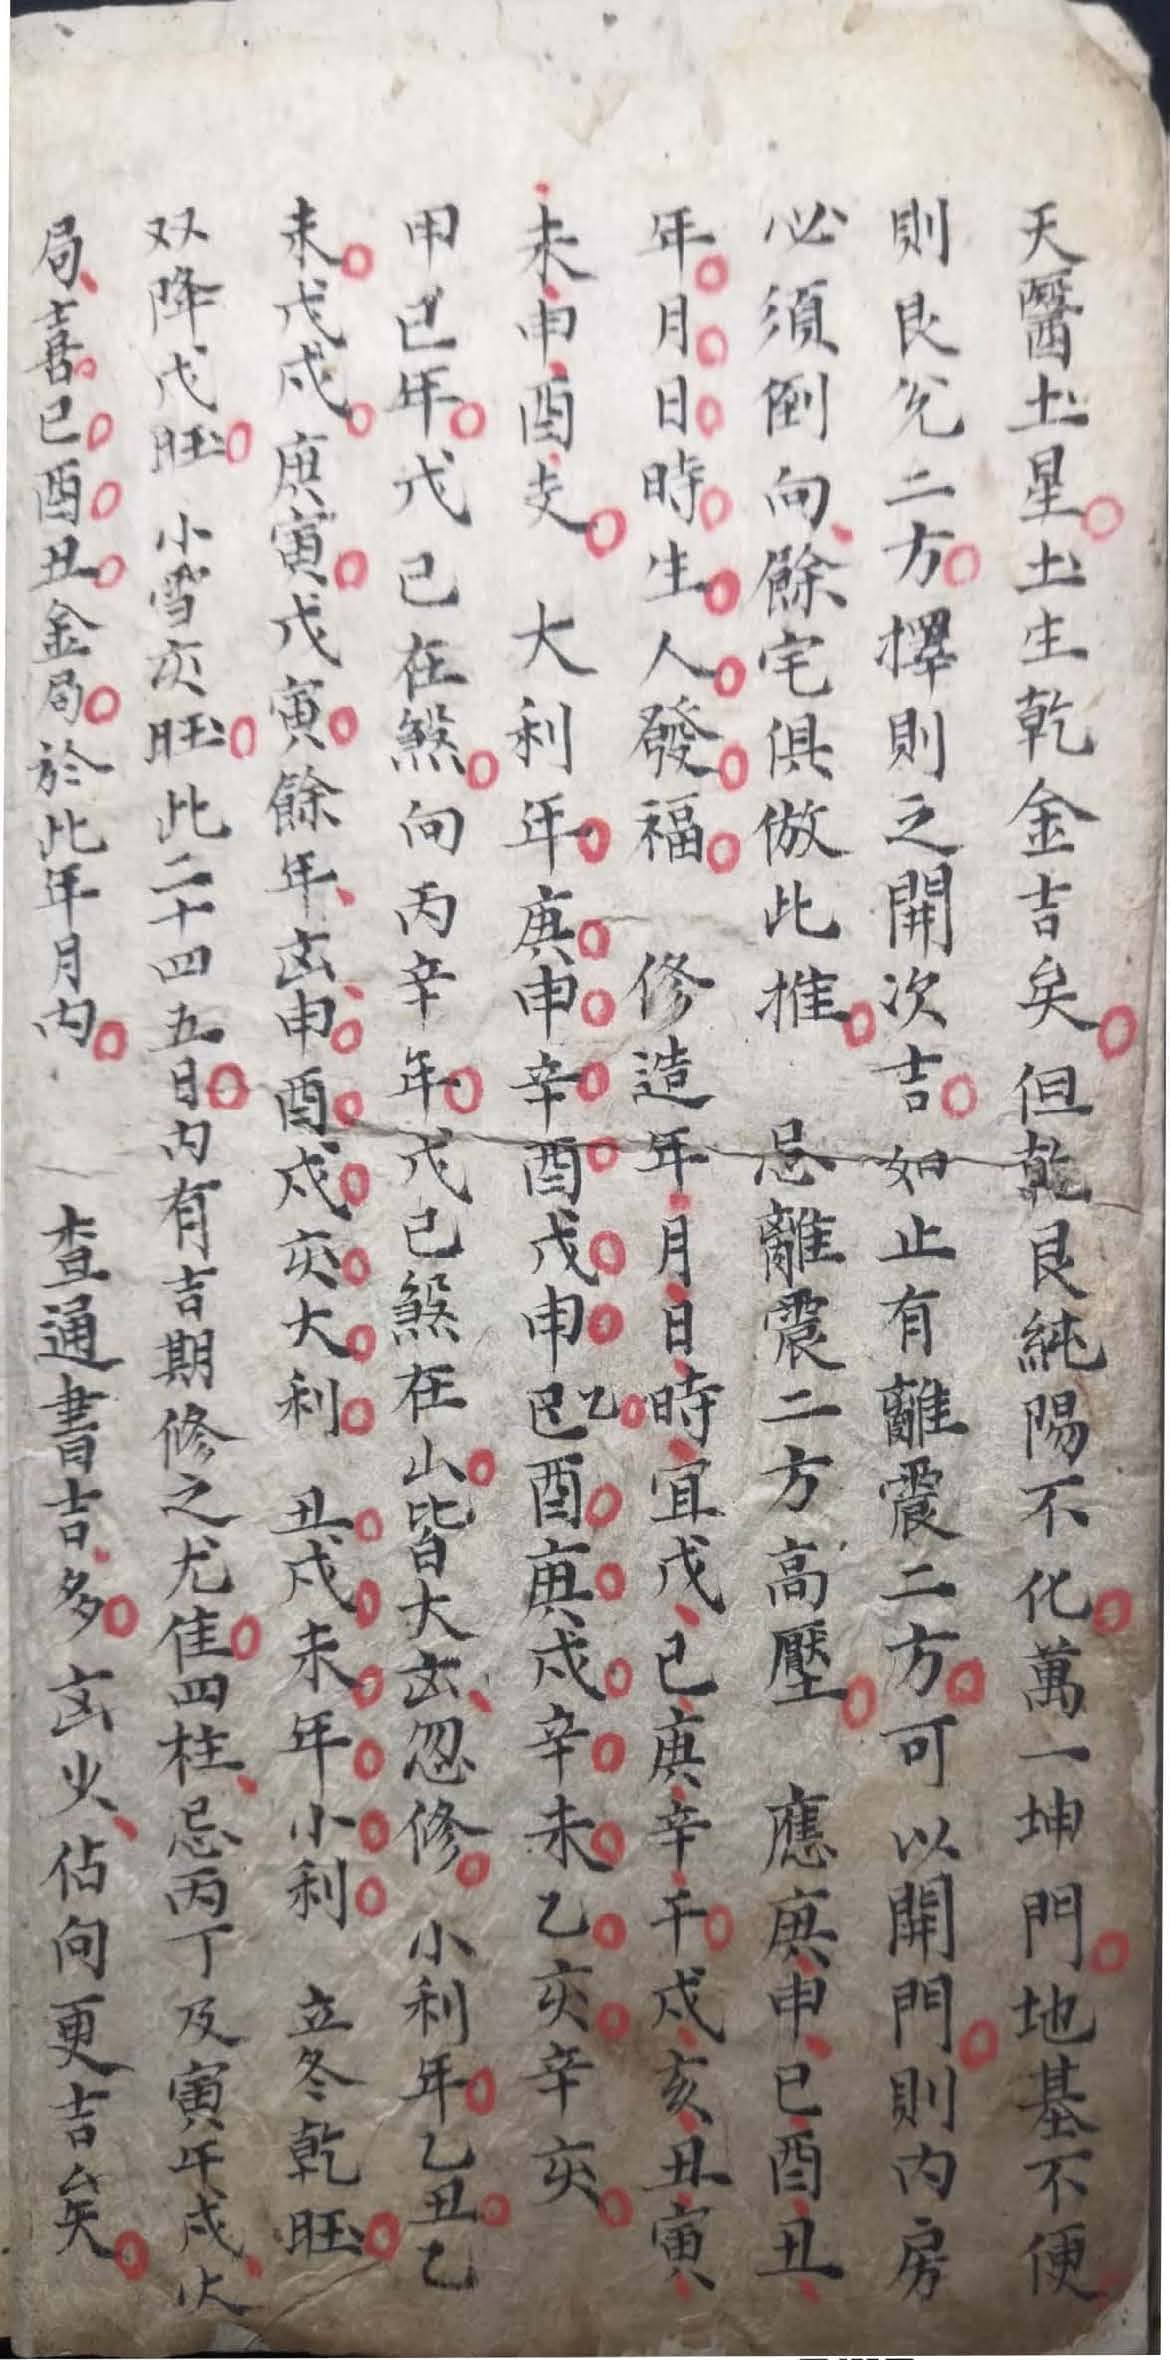 天醫土星土生乾金吉矣但乾艮純陽不化萬一坤門地基不便
則艮兌二方擇則之開次吉如止有離震二方可以開門則內房
必須倒向餘宅俱倣此推 忌離震二方高壓 應庚申巳酉丑
年月日時生人發福 修造年月日時宜戊己庚辛干戌亥丑寅
未申酉支 大利年庚申辛酉戊申乙巳酉庚戌辛未乙亥辛亥
甲己年戊己在煞向丙辛年戊己煞在山皆大凶忽修 小利年乙丑乙
未戊戌庚寅戊寅餘年凶申酉戌亥大利 丑戌未年小利 立冬乾旺
双降戊旺小雪亥旺此二十四五日內有吉期修之尤佳四柱忌丙丁及寅午戌火
局喜巳酉丑金局於此年月內 查通書吉多凶少佔向更吉矣